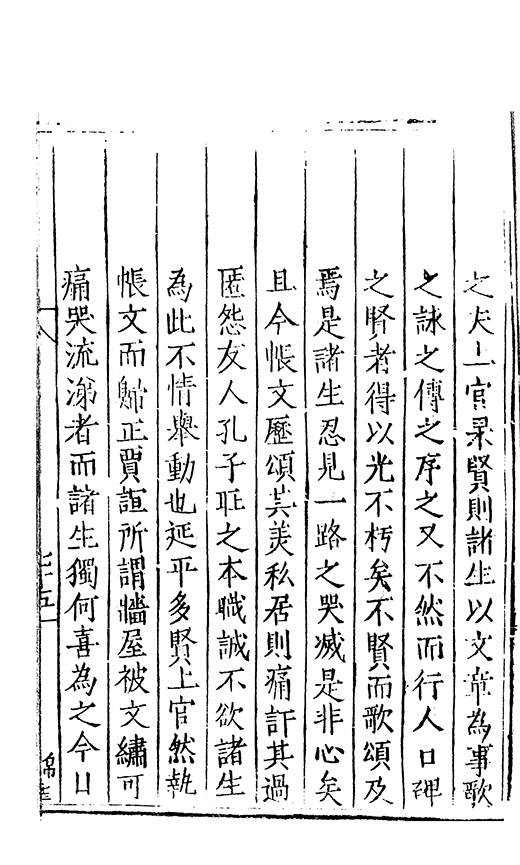 之夫上官果賢則諸生以文章為事歌
之詠之傳之序之又不然而行人口碑
之賢者得以光不朽矣不賢而歌頌及
焉是諸生忍見一路之哭滅是非心矣
且今帳文歷頌其美私居則痛訐其過
匿怨友人孔子耻之本職誠不欲諸生
為此不情舉動也延平多賢上官然執
帳文而歸正賈誼所謂牆屋被文繡可
痛哭流涕者而諸生獨何喜為之今日
五